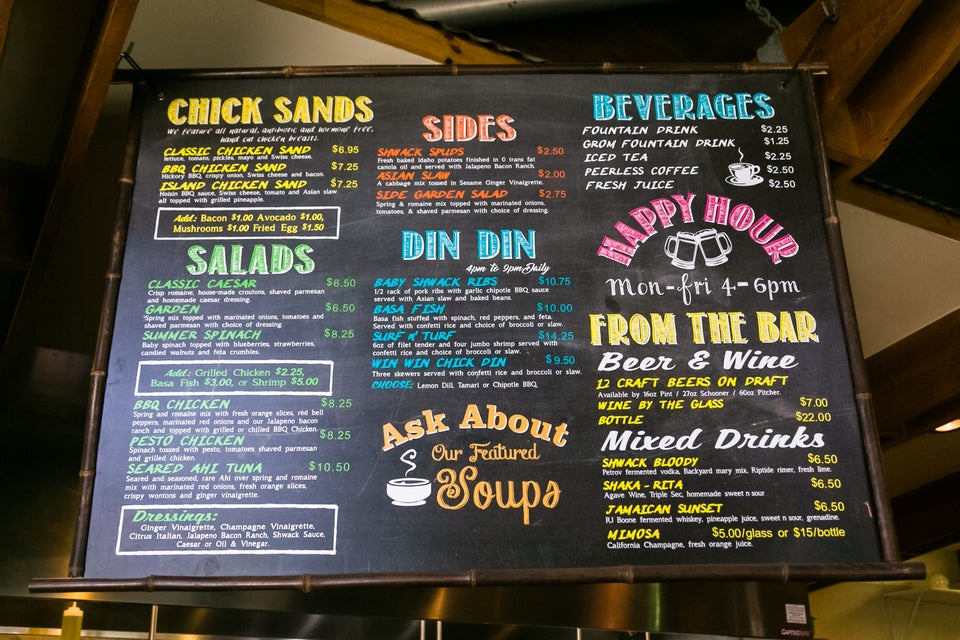 CHICK SANDS
We feature all natural, antibiotic and hormone free,
hand cut chicken breasts.
CLASSIC CHICKEN SAND $6.95
lettuce, tomato, pickles, mayo and Swiss cheese.
BBQ CHICKEN SAND $7.25
Hickory BBQ, crispy onion, Swiss cheese and bacon.
ISLAND CHICKEN SAND $7.25
Hoisin BBQ sauce, Swiss cheese, tomato and Asian slaw
all topped with grilled pineapple.
Add: Bacon $1.00 Avocado $1.00,
Mushrooms $1.00 Fried Egg $1.50
SALADS
CLASSIC CAESAR $6.50
Crisp romaine, house-made croutons, shaved parmesan
and homemade caesar dressing.
GARDEN $6.50
Spring mix topped with marinated onions, tomatoes and
shaved parmesan with choice of dressing.
SUMMER SPINACH $8.25
Baby spinach topped with blueberries, strawberries,
candied walnuts and feta crumbles.
Add: Grilled Chicken $2.25,
Basa Fish $3.00, or Shrimp $5.00
BBQ CHICKEN $8.25
Spring and romaine mix with fresh orange slices, red bell
peppers, marinated red onions and our Jalapeno bacon
ranch and topped with grilled or chilled BBQ Chicken.
PESTO CHICKEN $8.25
Spinach tossed with pesto, tomatoes shaved parmesan
and grilled chicken.
SEARED AHI TUNA $10.50
Seared and seasoned, rare Ahi over spring and romaine
mix with marinated red onions, fresh orange slices,
crispy wontons and ginver vinaigrette.
Dressings:
Ginger Vinaigrette, Champagne Vinaigrette,
Citrus Italian, Jalapeno Bacon Ranch, Shwack Sauce,
Caesar or Oil & Vinegar.
SIDES
SHWACK SPUDS $2.50
Fresh baked Idaho potatoes finished in 0 trans fat
canola oil and served with Jalapeno Bacon Ranch.
ASIAN SLAW $2.00
A cabbage mix tossed in Sesame Ginger Vinaigrette.
SIDE GARDEN SALAD $2.75
Spring & romaine mix topped with marinated onions,
tomatoes, & shaved parmesan with choice of dressing.
DIN DIN
4pm to 9pm Daily
BABY SHWACK RIBS $10.75
1/2 rack of pork ribs with garlic chipotle BBQ sauce
served with Asian slaw and baked beans.
BASA FISH $10.00
Basa fish stuffed with spinach, red peppers, and feta.
Served with confetti rice and choice of broccoli or slaw.
SURF N' TURF $14.25
6oz of filet tender and four jumbo shrimp served with
confetti rice and choice of broccoli or slaw.
WIN WIN CHICK DIN $9.50
Three skewers served with confetti rice and broccoli or slaw.
CHOOSE: Lemon Dill, Tamari or Chipotle BBQ.
Ask About
Our Featured
Soups
BEVERAGES
FOUNTAIN DRINK $2.25
GROM FOUNTAIN DRINK $1.25
ICED TEA $2.25
PEERLESS COFFEE $2.50
FRESH JUICE $2.50
HAPPY HOUR
Mon-fri 4-6pm
FROM THE BAR
Beer & Wine
12 CRAFT BEERS ON DRAFT
Available by 16oz Pint / 27oz Schooner / 60oz Pitcher.
WINE BY THE GLASS $7.00
BOTTLE $22.00
Mixed Drinks
SHWACK BLOODY $6.50
Petrov fermented vodka, Backyard mary mix, Riptide rimer, fresh lime.
SHAKA-RITA $6.50
Agave Wine, Triple Sec, homemade sweet n sour
JAMAICAN SUNSET $6.50
RJ Boone fermented whiskey, pineapple juice, sweet n sour, grenadine.
MIMOSA $5.00/glass or $15/bottle
California Champagne, fresh orange juice.
CAPTIVEAIRE